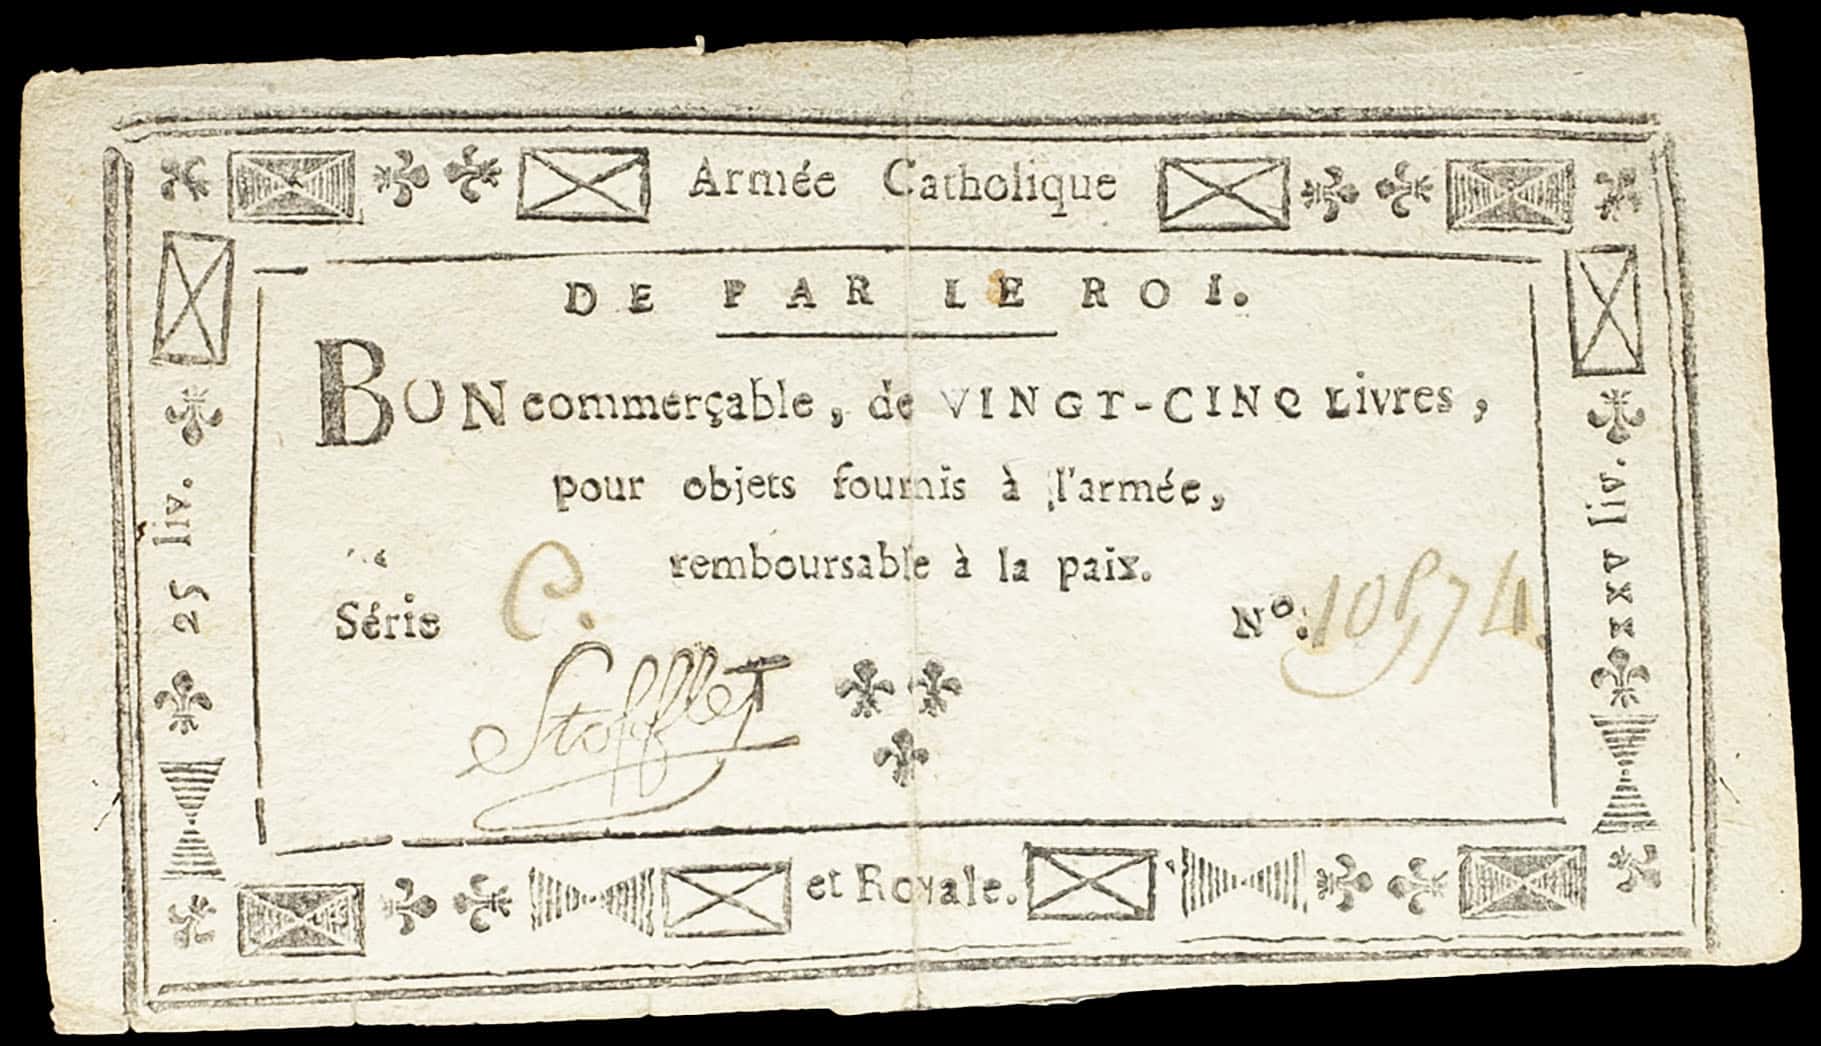 Armée Catholique
DE PAR LE ROI.
BON commerçable, de VINGT-CINQ Livres,
pour objets fournis à l'armée,
remboursable à la paix.
Série C. Nº. 10574.
Stofflet
25 liv.
xxv liv.
et Royale.